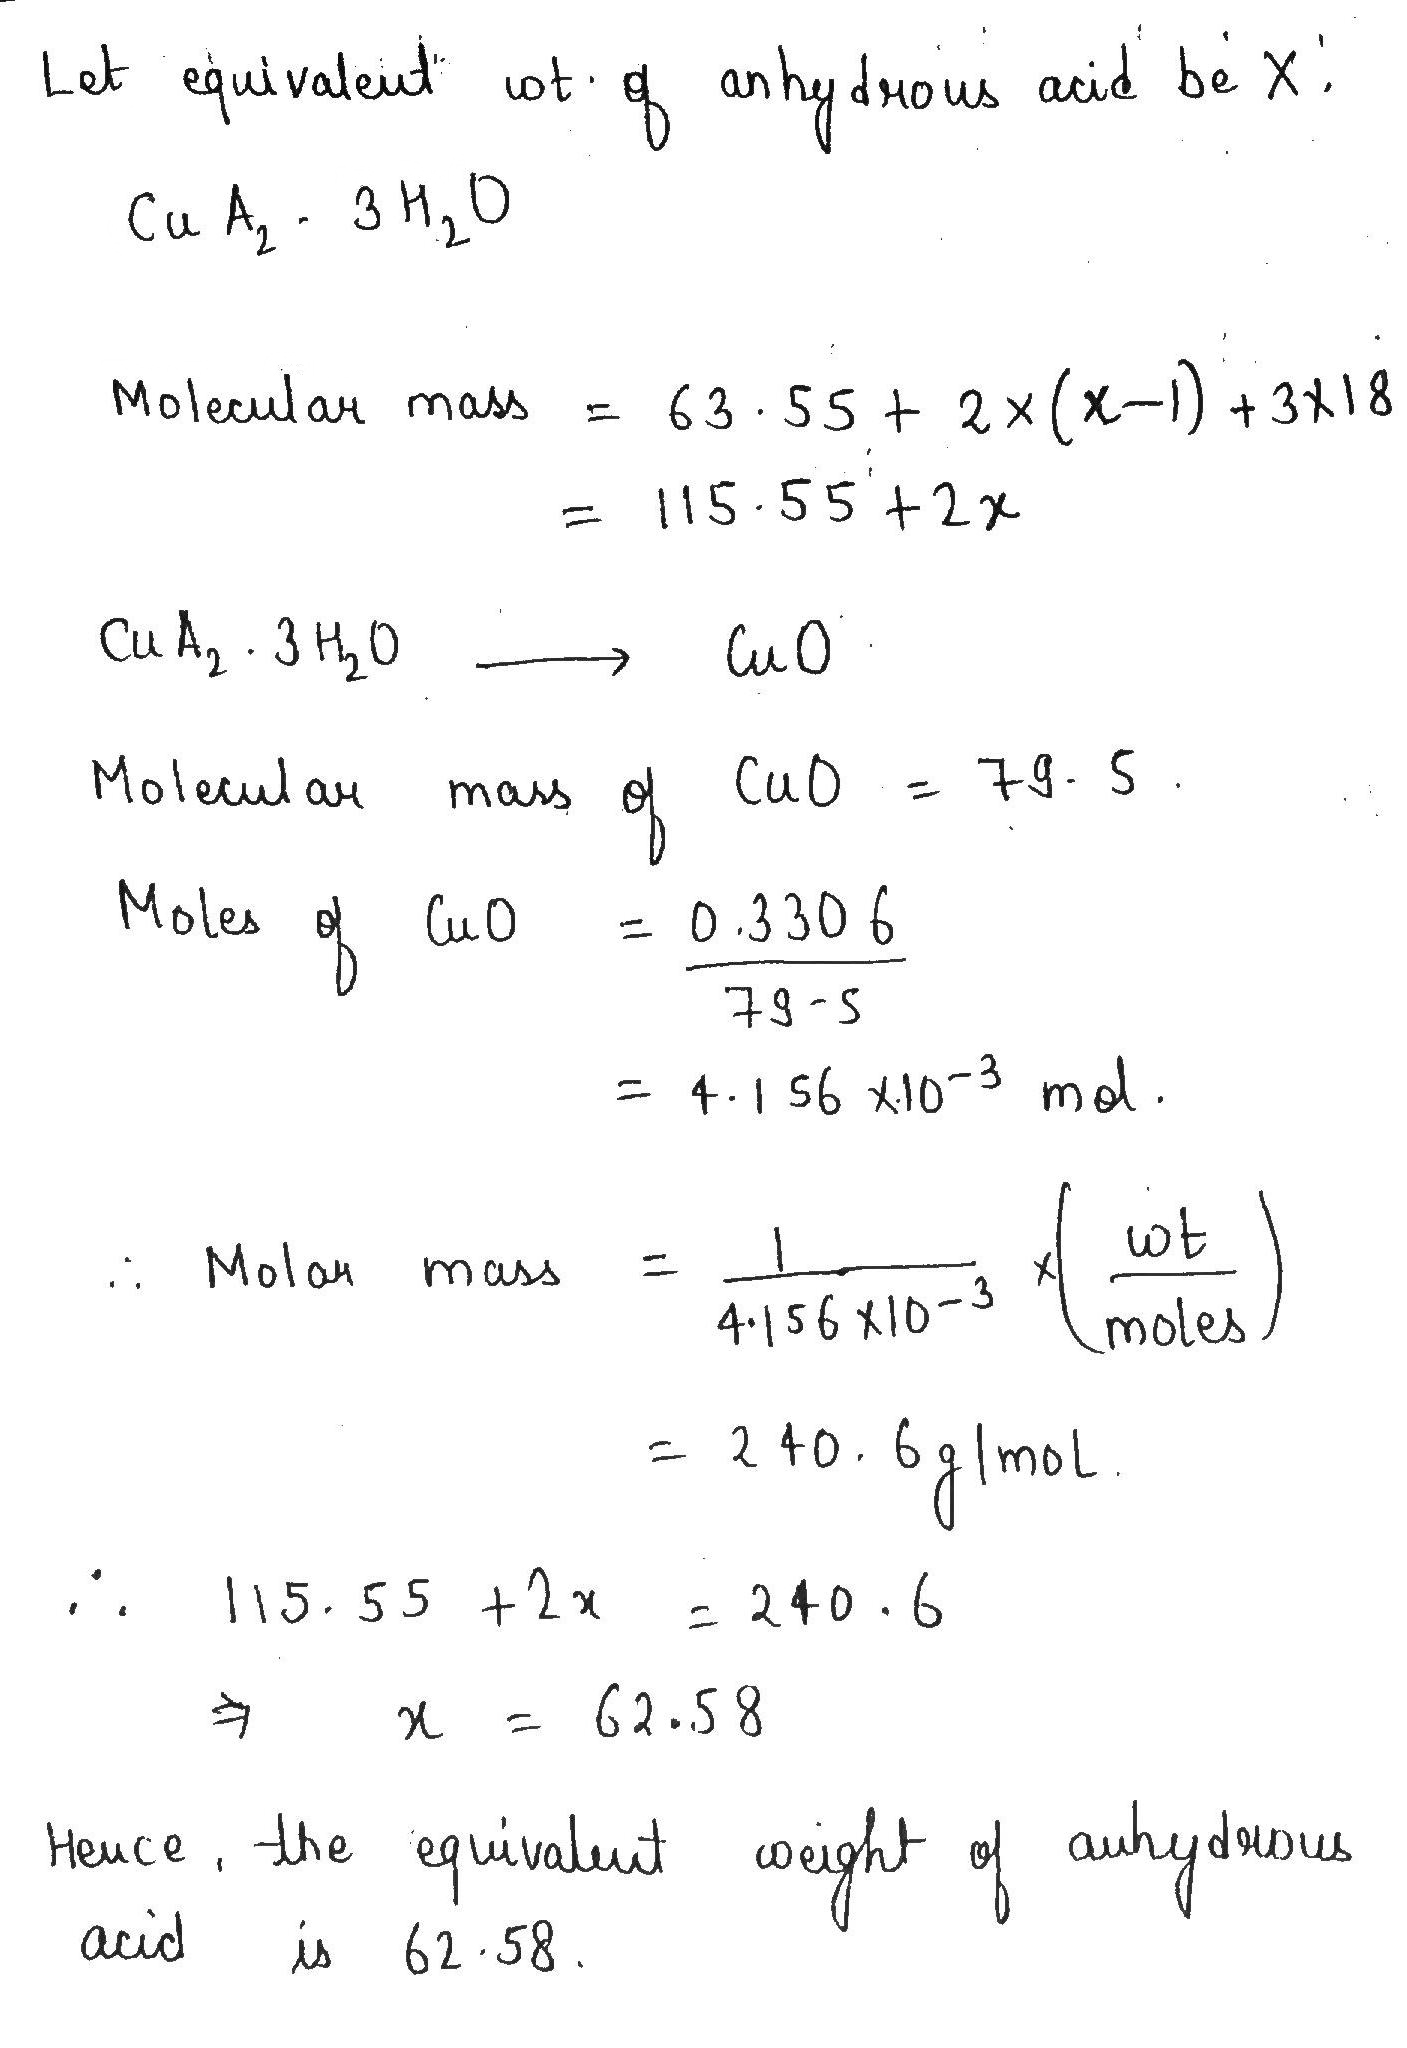 Let equivalent wt. of anhydrous acid be X.
CuA₂ . 3H₂O
Molecular mass = 63.55 + 2×(x-1) + 3×18
= 115.55 + 2x
CuA₂ . 3H₂O → CuO
Molecular mass of CuO = 79.5.
Moles of CuO = 0.3306
79-5
= 4.156 ×10⁻³ mol.
∴ Molar mass = 1 / 4.156 ×10⁻³ × (wt / moles)
= 240.6g/mol.
∴ 115.55 + 2x = 240.6
⇒ x = 62.58
Hence, the equivalent weight of anhydrous
acid is 62.58.